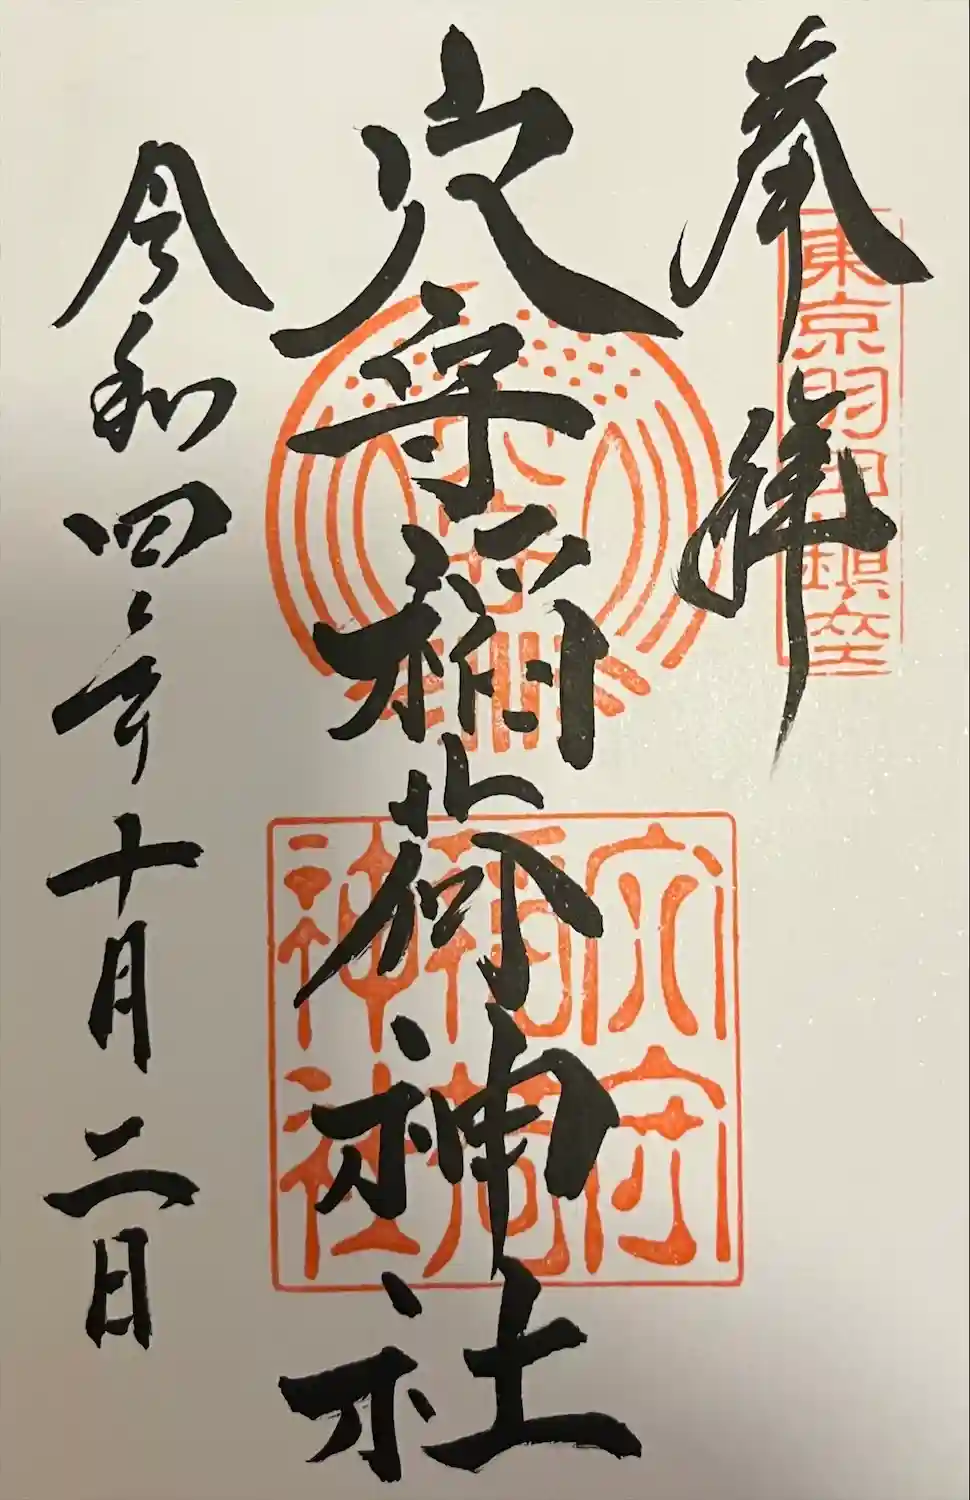 奉拝
東京羽田鎮座
穴守稲荷神社
穴守
穴守
稲荷
神社
令和四年十月二日